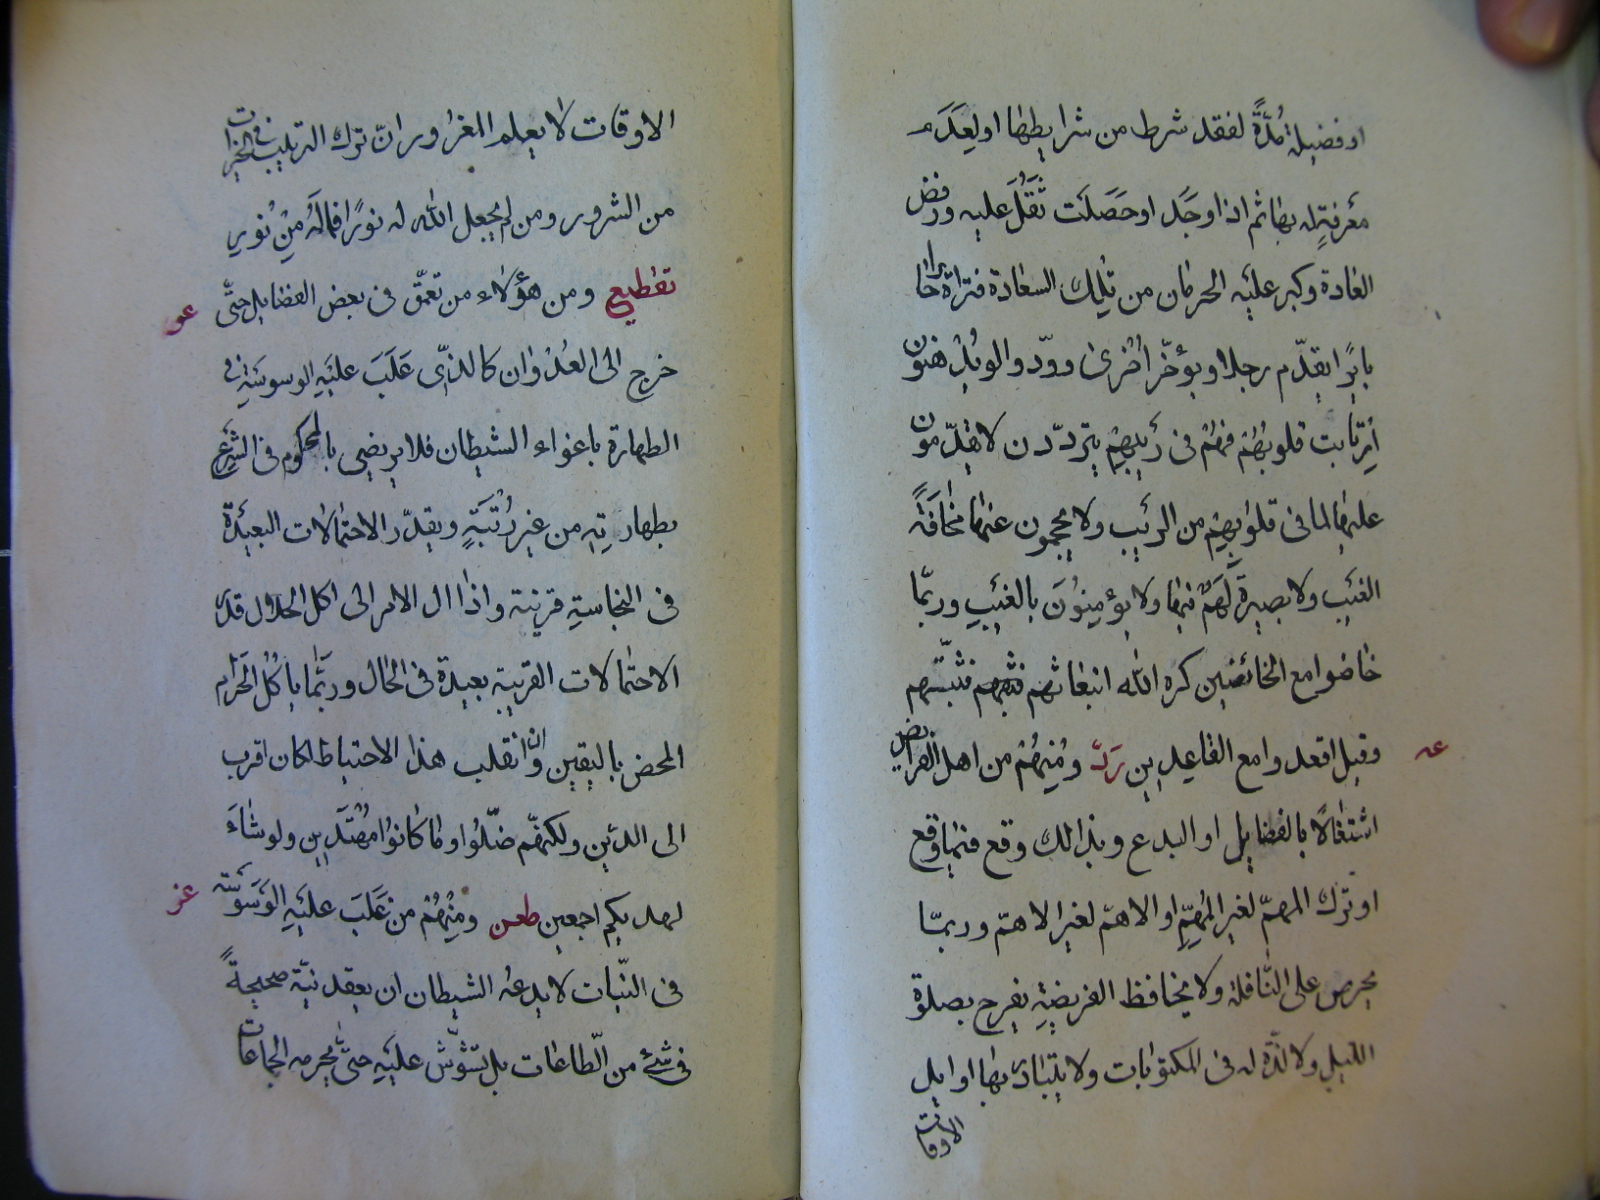 او فضيلة مُدَّةً لفقد شرط من شرايطها او لِعَدَم
معرفةٍ له بها ثم اذا وجَد او حَصَلَت ثَقُلَ عليه ورفض
العادة وكبر عليْه الحرمان من تلك السعادة فتراه حا
يرًا يرًا يقدّم رجلا و يؤخّر اُخْرىٰ وودّ والو يُدْهنون
اِرتابت قلوبُهُمْ فهُمْ فى رَيْبِهِمْ يتردّدن لا يقدّمون
عليها لما فى قلوبهِمْ من الرَيْب ولا يحجمون عنها مخافَةً
الغيْب ولا بصيرة لَهُمْ فيها ولا يؤمِنوُنَ بالغيْبِ وربّما
خاضوا مع الخائضين كره اللّه انبعاثهم فثبّطهم
وقيل اقعدوا مع القاعِدين رَدّ ومُنِهُمْ من اهل الفرايض
اشتغالًا بالفضايل او البدع وبذالك وقع فيما وقع
او ترك المهمّ لغير المُهِمِّ او الاهمّ لغير الاهمّ وربّما
يحرص على النّافلة ولا يحافظ الفريضةِ يفرح بصلوٰة
الليل ولا لذّة له فى المكتوبات ولا يتبادىٰ بها اوايل
الاوقات
عہ
الاوقات لا يعلم المغرور انّ ترك الترتيب فى الخيرات
من الشرور ومن لم يجعل اللّه له نورًا فما لَهُ مِنْ نُورٍ
تقطيع ومن هؤلاء من تعمّق فى بعض الفضايل حتّى
خرج الى العُدْوان كالذّى غَلَبَ عليْه الوسوسَةِ فى
الطهارة باغواء الشيطان فلا يرتضى بالمحكوم فى الشَّرعِ
بطهارتِه من غير رُتبَةٍ ويقدّر الاحتمالات البعيْدة
فى النجاسةِ قرينة واذا ال الامر الى اكل الحلال قدّر
الاحتمالات القريبة بعيدة فى الحال وربّما ياكُلُ الحَرام
المحض باليقين وان انقلب هذا الاحتياط لكان اقرب
الى الدين ولكنهّم ضّلوا وما كانوُا مهُتَدين ولو شاءَ
لهديكم اجمعين طعن ومِنْهُمْ من غَلَبَ عليْهِ الوَسَوسَة
فى النّيات لا يدعهُ الشيطان ان يعقد نيّة صحيحةً
فى شئ من الّطاعات بل يشوّش عليْهِ حتّى يحرمه الجماعات